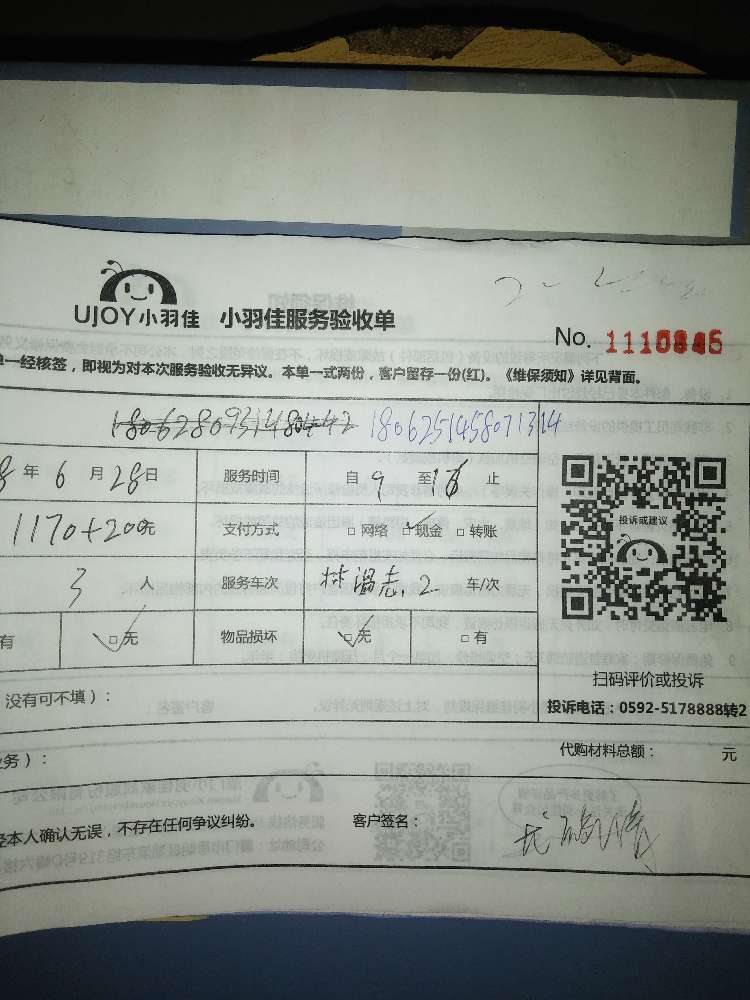 UJOY小羽佳 小羽佳服务验收单
No. 1110846
单一经核签，即视为对本次服务验收无异议。本单一式两份，客户留存一份(红)。《维保须知》详见背面。
180625145871314
8 年 6 月 28 日 服务时间 自 9 至 18 止
1170+200元 支付方式 □ 网络 □ 现金 □ 转账
投诉或建议
3 人 服务车次 林 志.2 车/次
有 □ 无 物品损坏 □ 无 □ 有
扫码评价或投诉
没有可不填）：
投诉电话：0592-5178888转2
务）：
代购材料总额： 元
经本人确认无误，不存在任何争议纠纷。 客户签名：